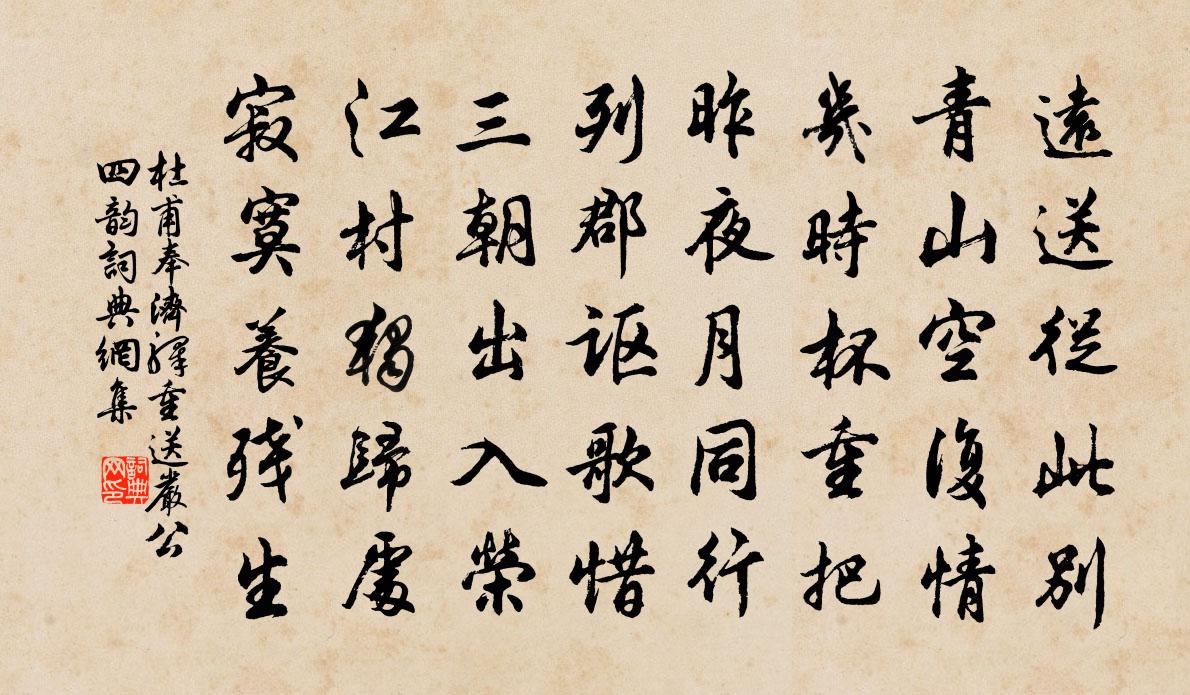 遠送從此別
青山空復情
幾時杯重把
昨夜月同行
列郡謳歌惜
三朝出入榮
江村獨歸處
寂寞養殘生
杜甫奉濟驛重送嚴公
四韵詞典網集
詞典
网印